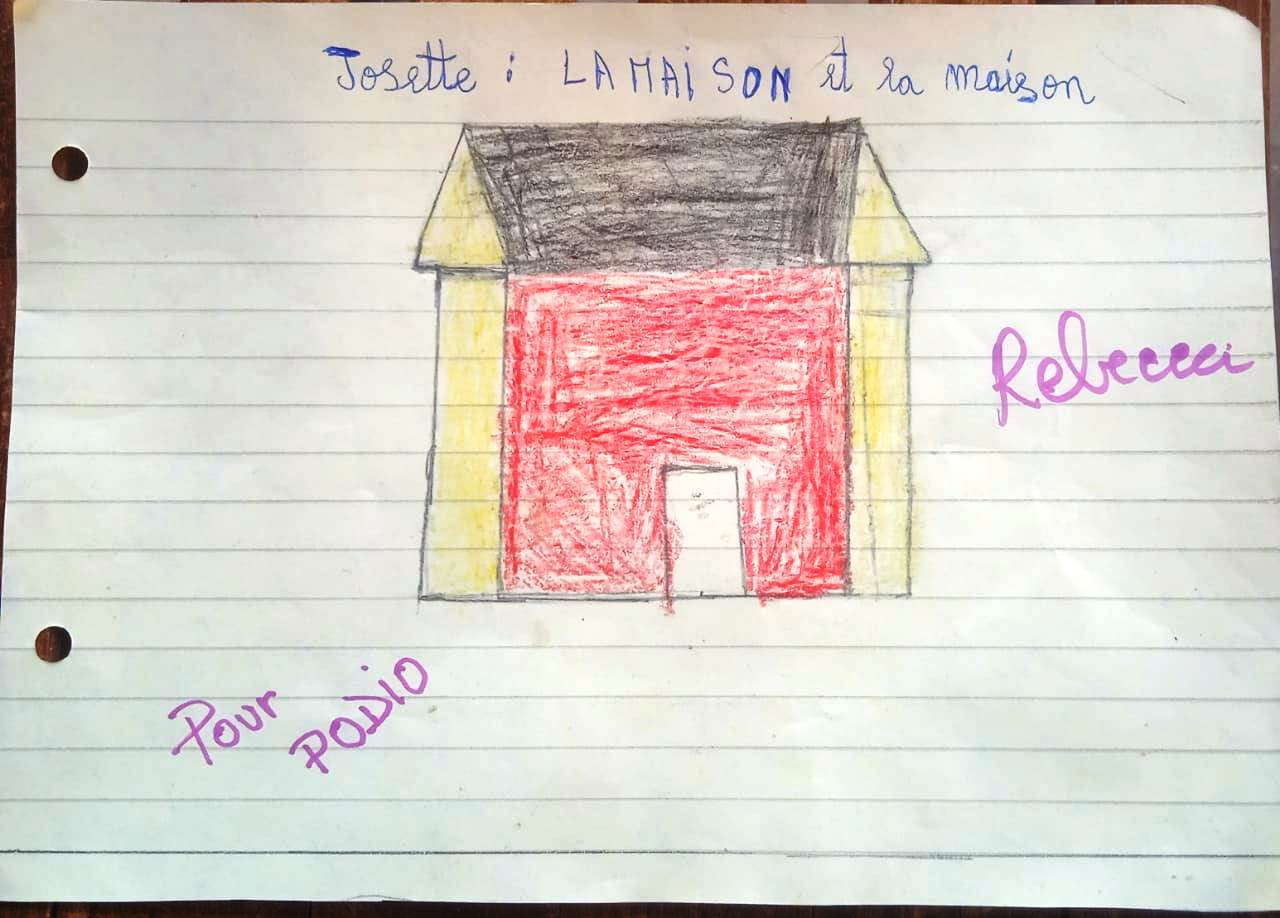 Josette : LA MAiSON et la maison
Rebecca
Pour
PODiO